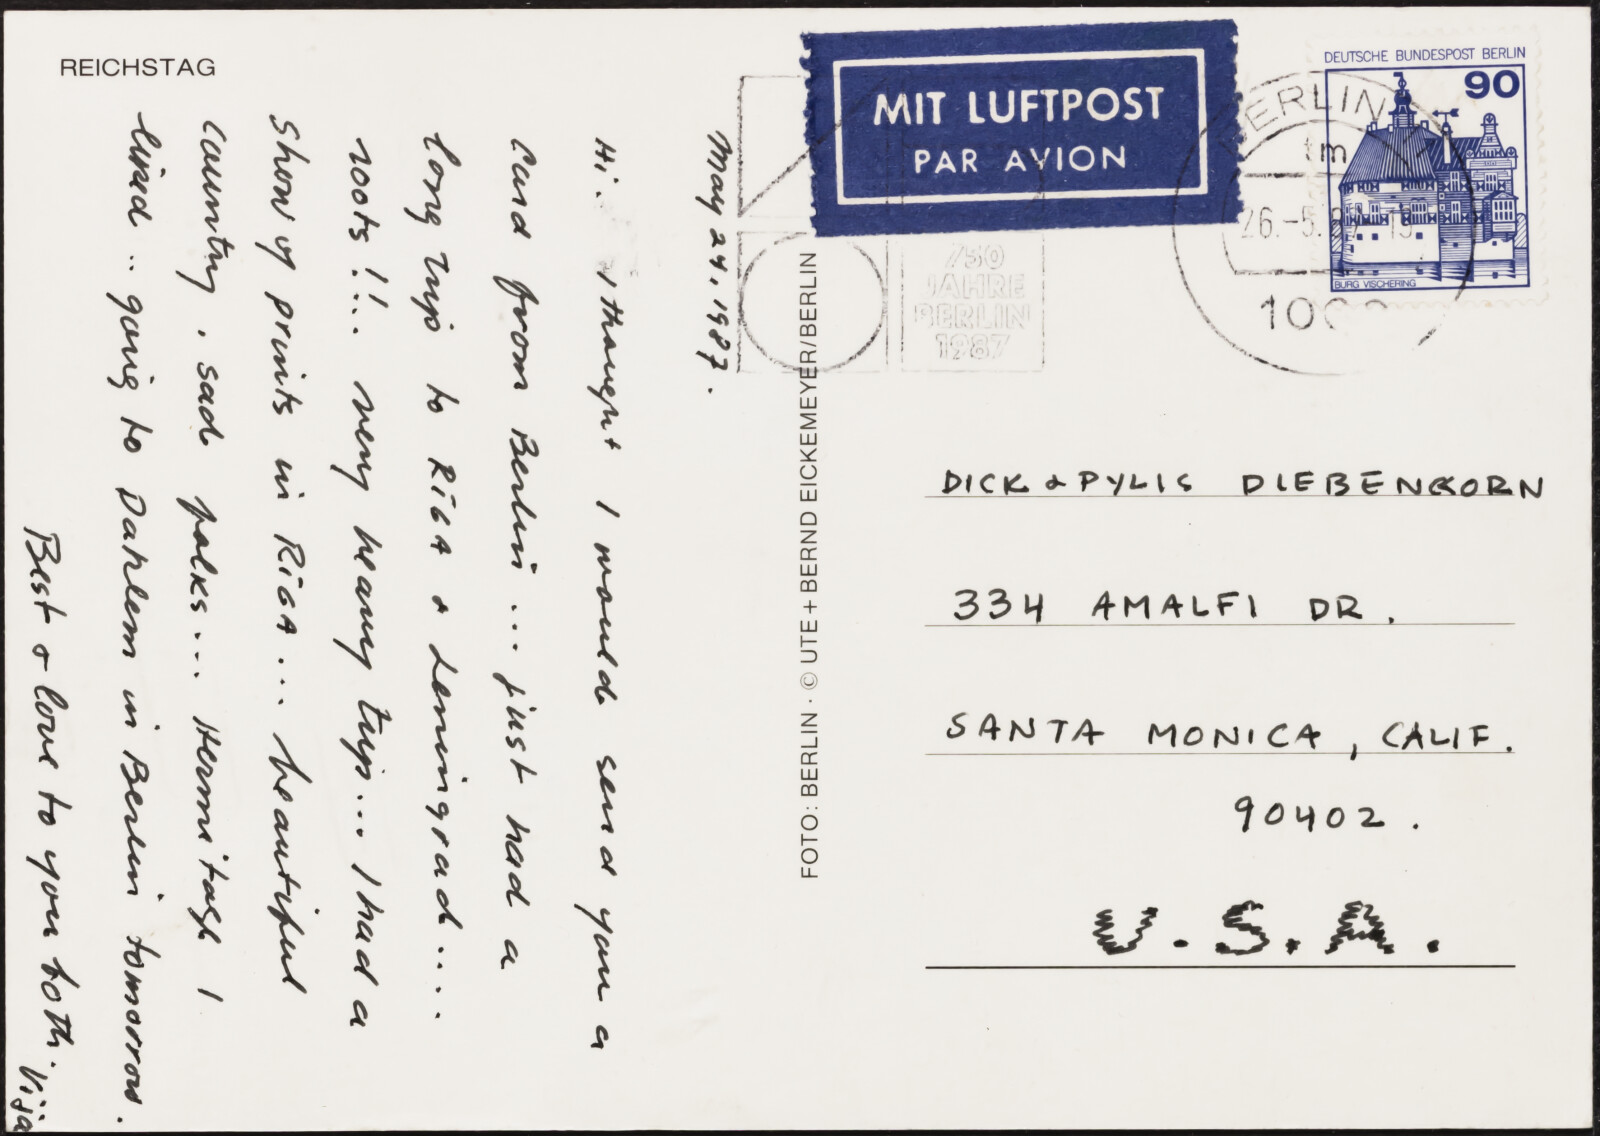 REICHSTAG
May 24, 1987.
Hi.. thought I would send you a
card from Berlin... just had a
long trip to RIGA & Leningrad....
roots!!.. very heavy trip... I had a
show of prints in RIGA... beautiful
country, sad folks... Hermitage I
liked.. going to Dahlem in Berlin tomorrow.
Best & love to you both.
Vija
FOTO: BERLIN · © UTE + BERND EICKEMEYER/BERLIN
MIT LUFTPOST
PAR AVION
750
JAHRE
BERLIN
1987
BERLIN
tm
26.-5.87-19
DEUTSCHE BUNDESPOST BERLIN
90
BURG VISCHERING
DICK & PYLIS DIEBENKORN
334 AMALFI DR.
SANTA MONICA, CALIF.
90402.
U.S.A.